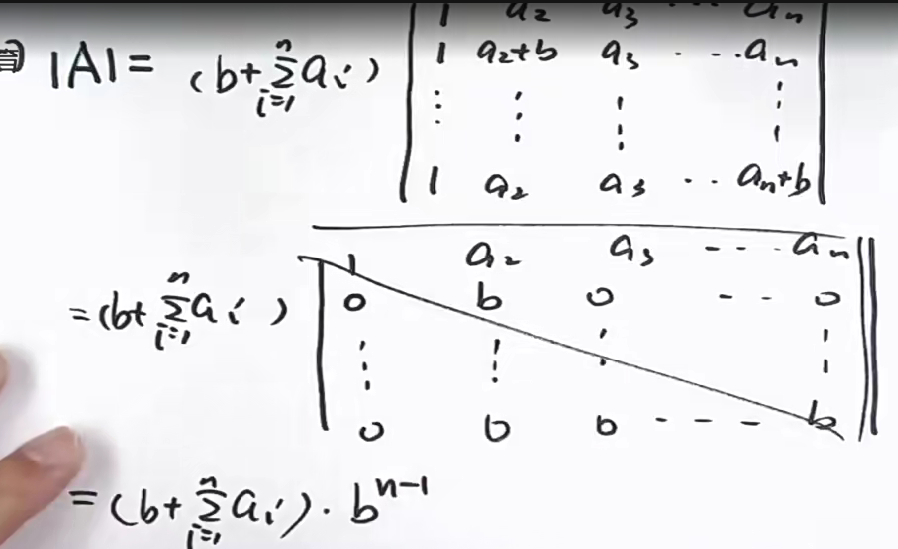 |A| = (b+∑_{i=1}^{n} a_i) | 1 a_2 a_3 ··· a_n
1 a_2+b a_3 ·····a_n
⋮ ⋮ ⋮ ⋮
1 a_2 a_3 ·· a_n+b |
= (b+∑_{i=1}^{n} a_i) | 1 a_2 a_3 ---- a_n
0 b 0 -- 0
⋮ ⋮ ⋮ ⋮
0 0 0 --- b |
= (b+∑_{i=1}^{n} a_i) · b^{n-1}